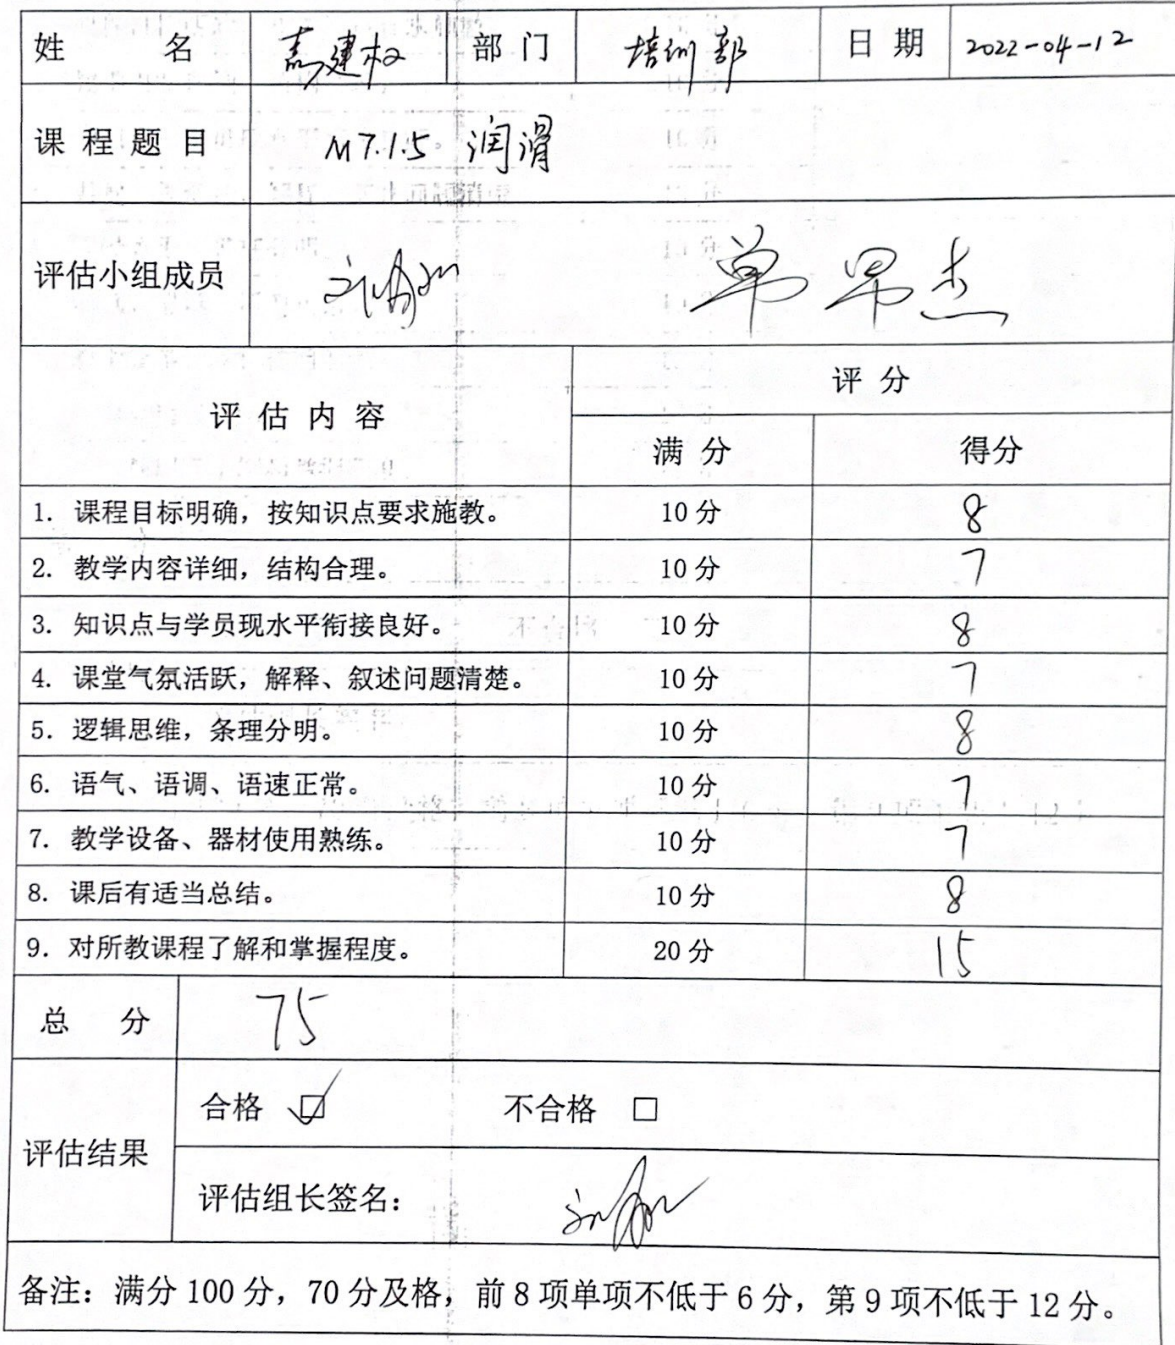 姓 名 建权 部门 培训部 日期 2022-04-12
课程题目 M7.1.5 润滑
评估小组成员 单 杰
评估内容 评分
满分 得分
1. 课程目标明确，按知识点要求施教。 10分 8
2. 教学内容详细，结构合理。 10分 7
3. 知识点与学员现水平衔接良好。 10分 8
4. 课堂气氛活跃，解释、叙述问题清楚。 10分 7
5. 逻辑思维，条理分明。 10分 8
6. 语气、语调、语速正常。 10分 7
7. 教学设备、器材使用熟练。 10分 7
8. 课后有适当总结。 10分 8
9. 对所教课程了解和掌握程度。 20分 15
总 分 75
评估结果 合格 ☑ 不合格 □
评估组长签名：
备注：满分100分，70分及格，前8项单项不低于6分，第9项不低于12分。